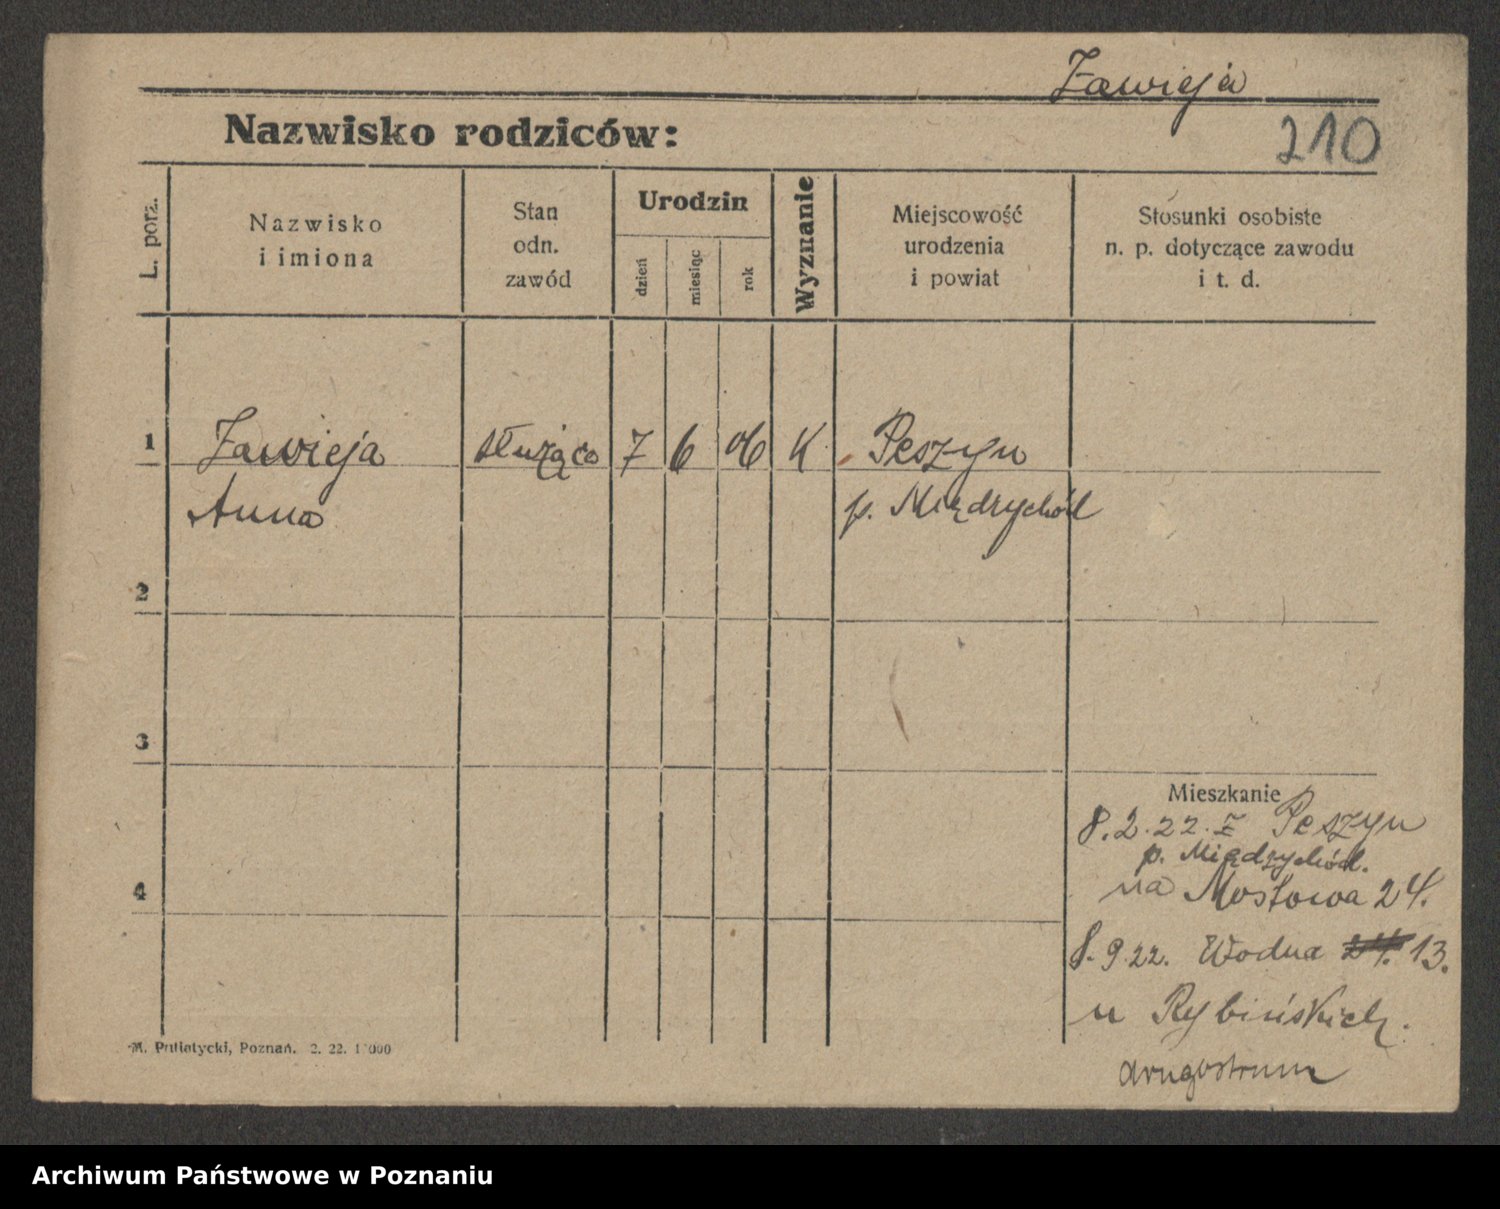 Zawieja
Nazwisko rodziców:
210
L. porz.
Nazwisko
i imiona
Stan
odn.
zawód
Urodzin
dzień
miesiąc
rok
Wyznanie
Miejscowość
urodzenia
i powiat
Stosunki osobiste
n. p. dotyczące zawodu
i t. d.
1 Zawieja służąca 7 6 06 K Peszyn
Anna p. Międzychód
2
3
4
Mieszkanie
8.2.22. z Peszyn
p. Międzychód.
na Mostowa 24.
8.9.22. Wodna 24. 13.
u Rybińskich.
drugostrum
M. Putiatycki, Poznań. 2. 22. 1 000
Archiwum Państwowe w Poznaniu